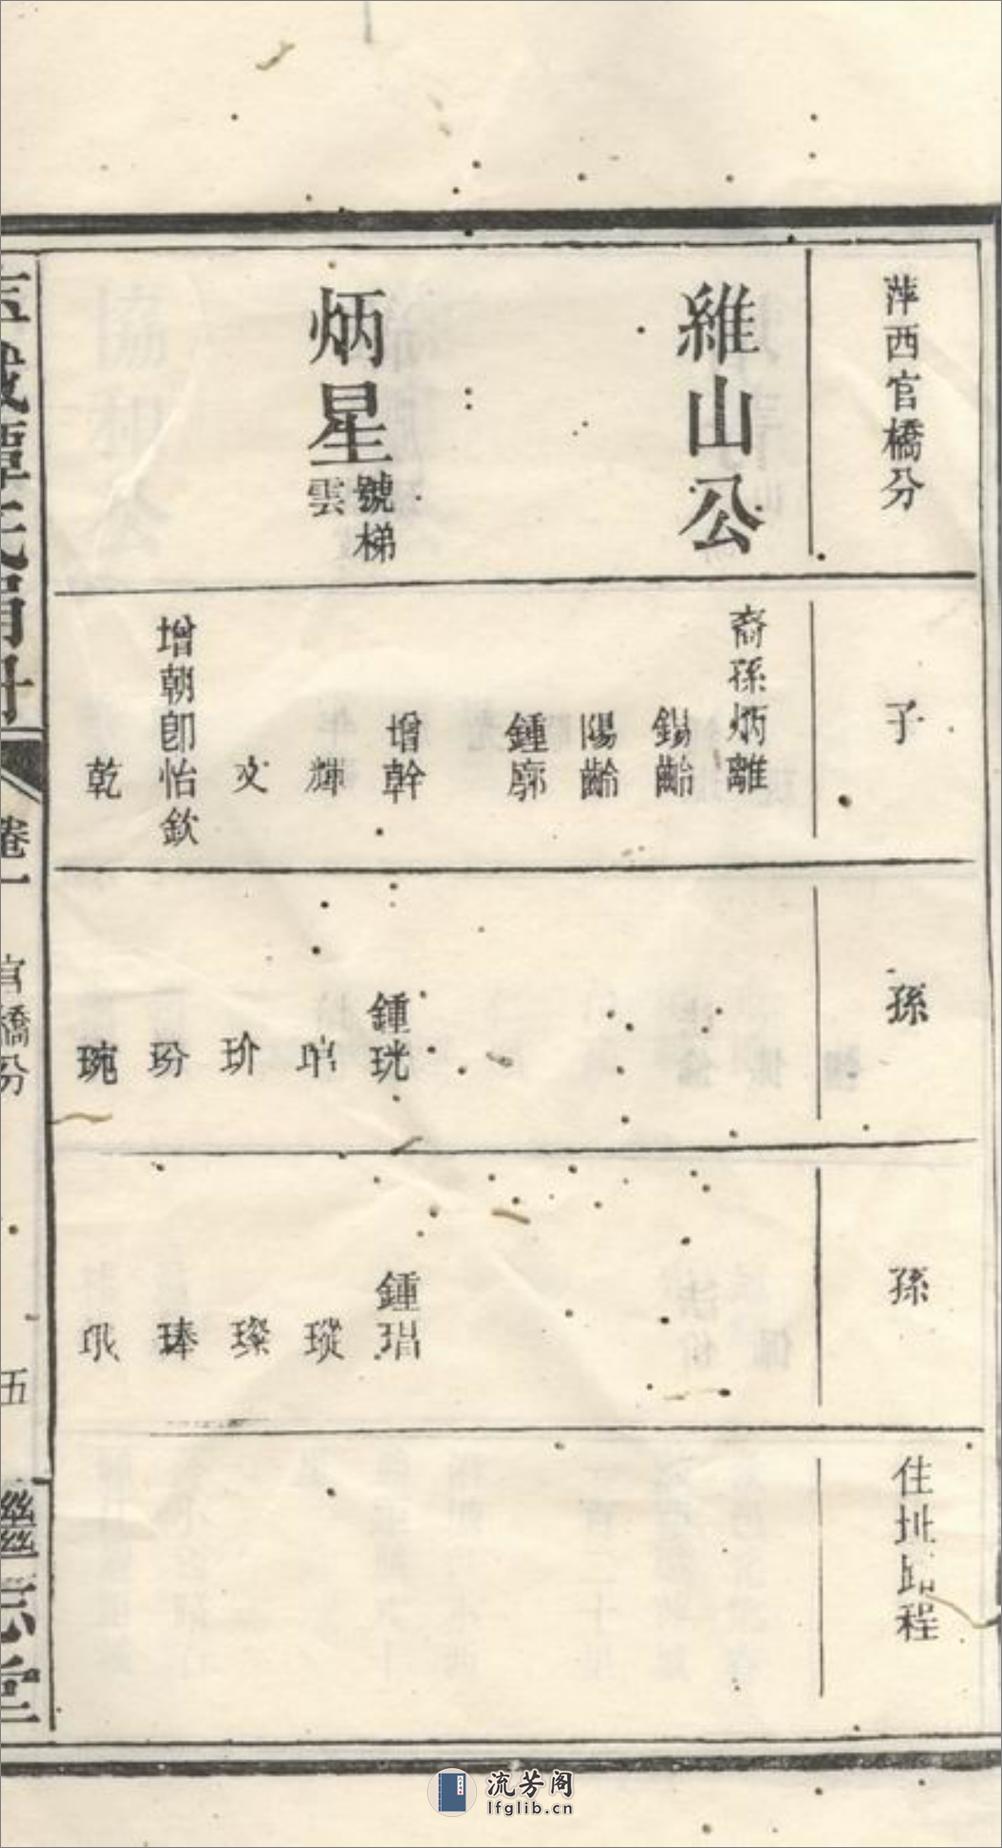 萍西官橋分
子
孫
孫
住址路程
維山公
裔孫炳離
錫齡
陽齡
鍾廓
炳星
號梯
雲
增幹
輝
文
增朝卽怡欽
乾
鍾珖
琯
玠
玢
琬
鍾琩
瑽
璨
琫
珉
譚氏
卷一
官橋分
五
繼志堂
流芳阁
lfglib.cn